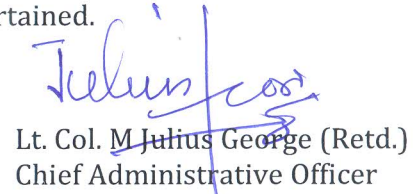 rtained.
Julius
Lt. Col. M Julius George (Retd.)
Chief Administrative Officer